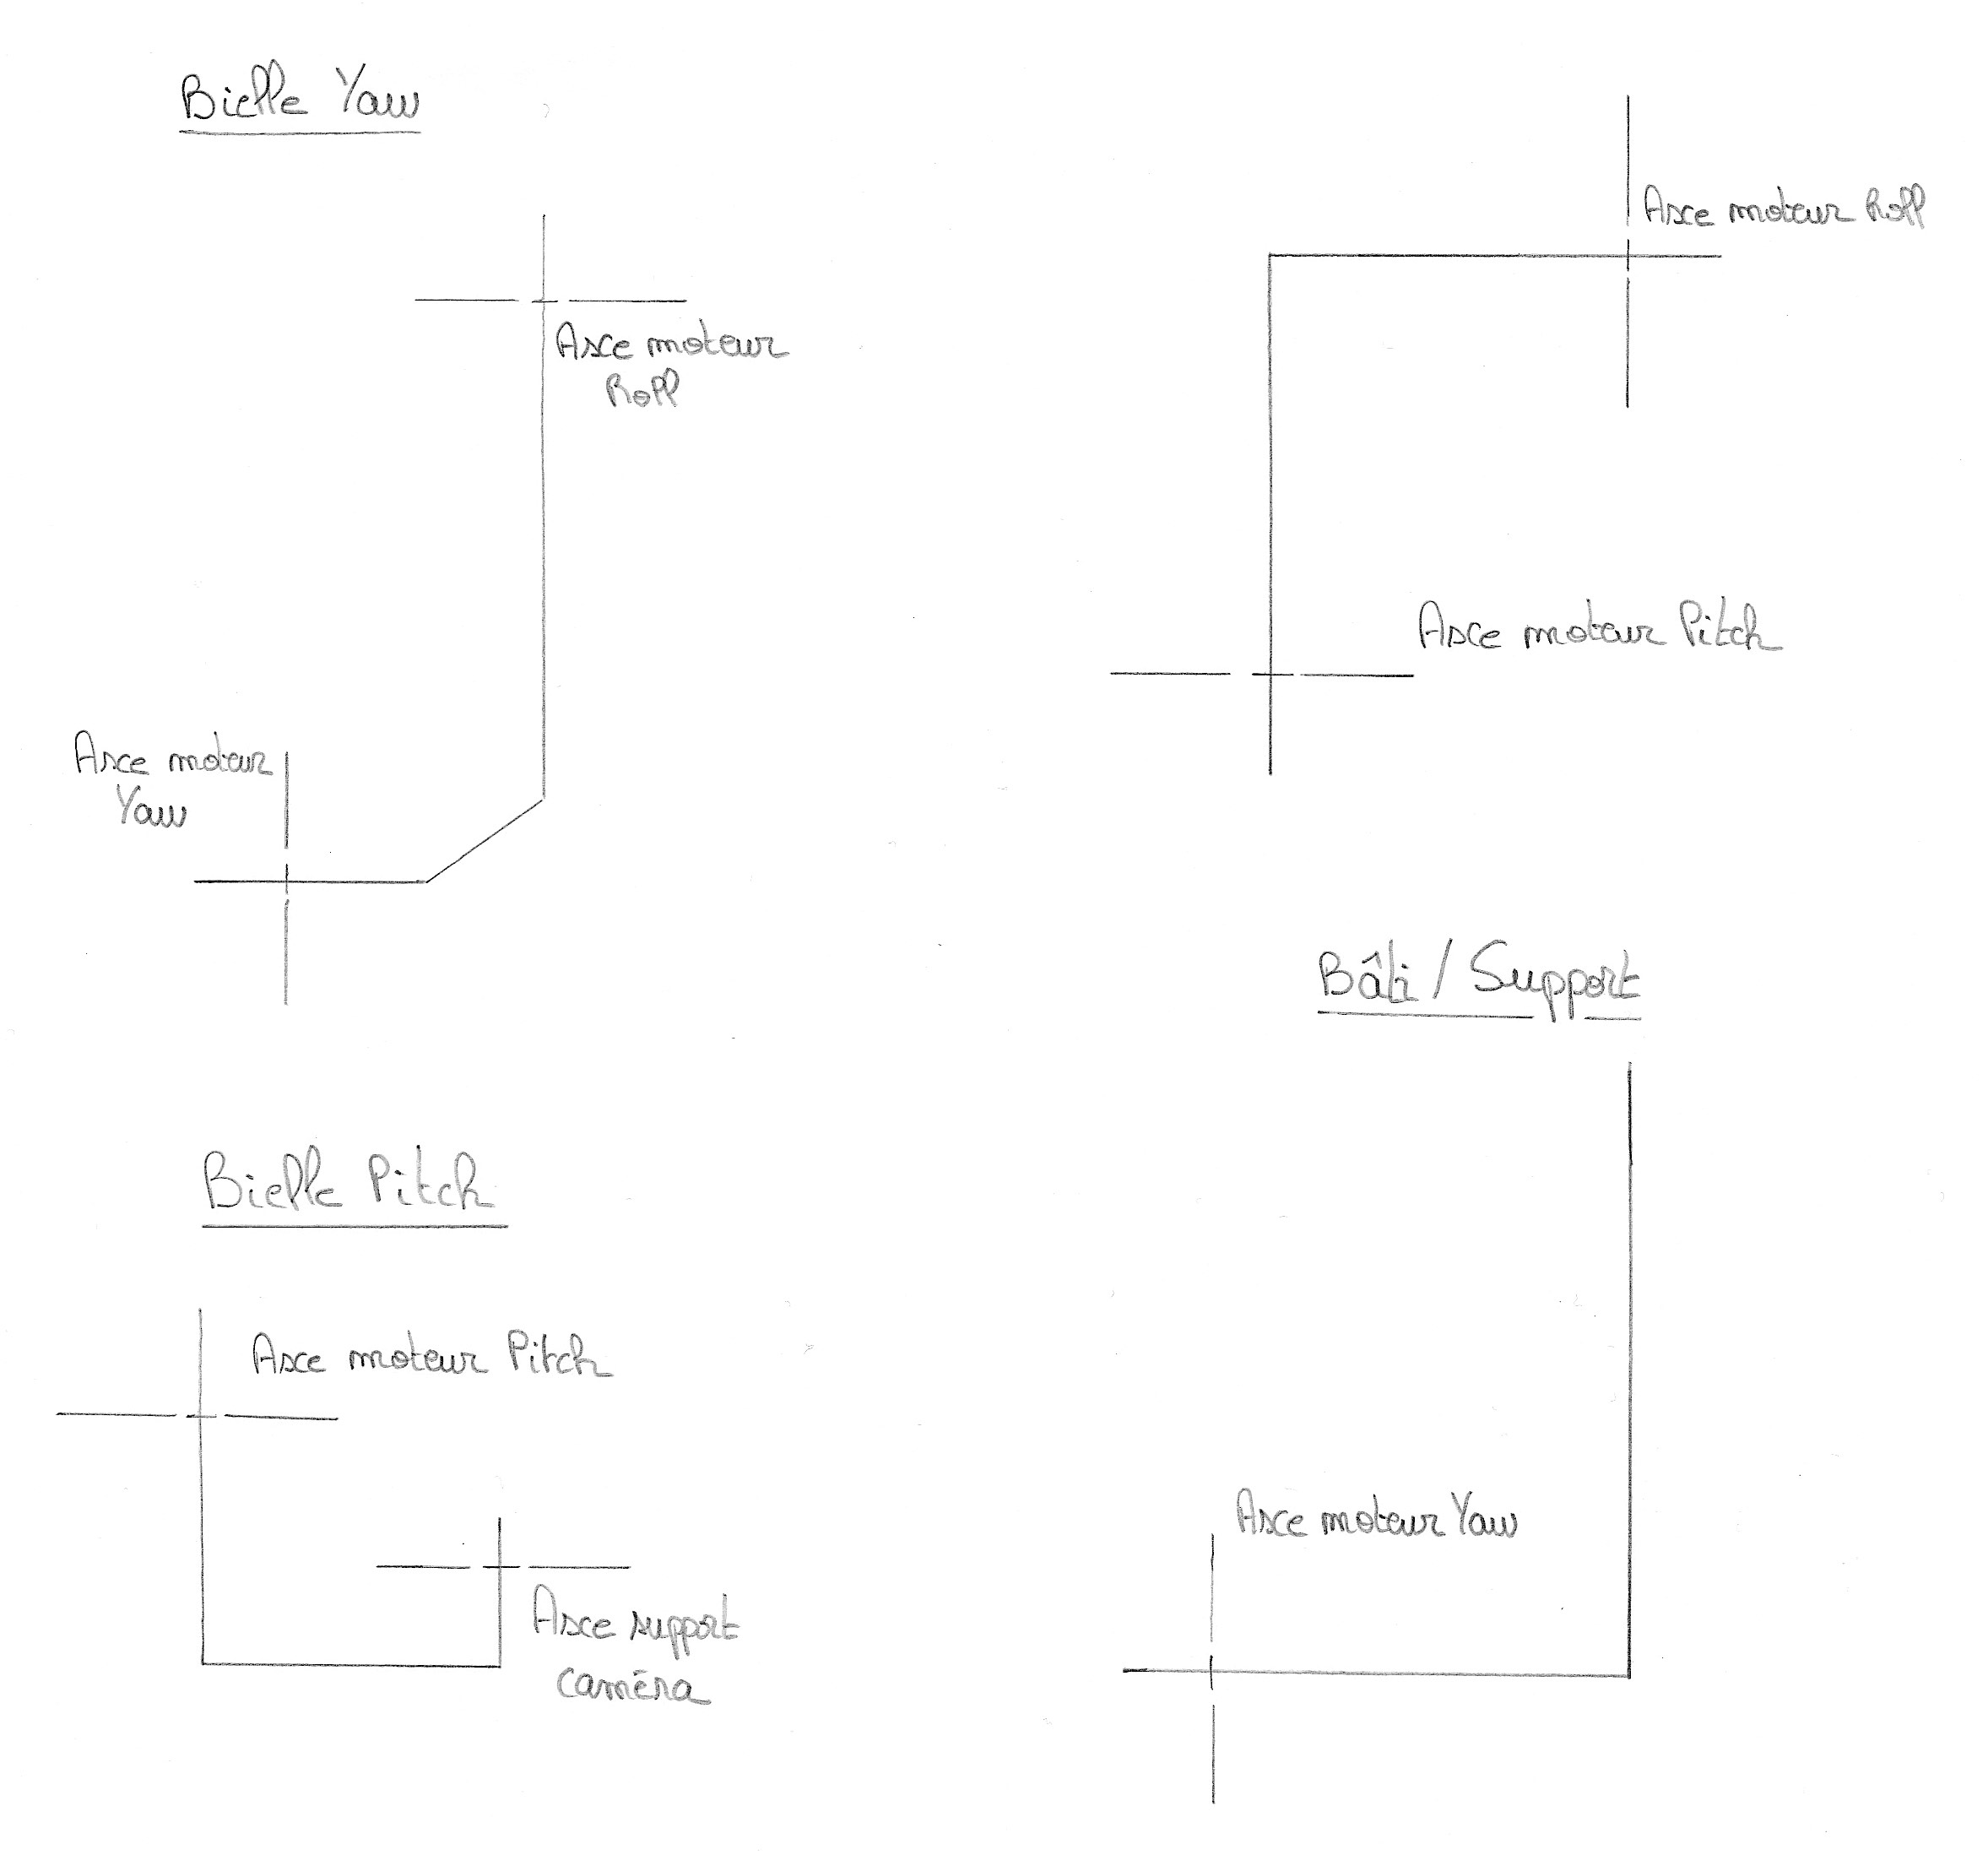 Bielle Yaw
Axe moteur
Roll
Axe moteur
Yaw
Axe moteur Roll
Axe moteur Pitch
Bielle Pitch
Axe moteur Pitch
Axe support
caméra
Bâti / Support
Axe moteur Yaw